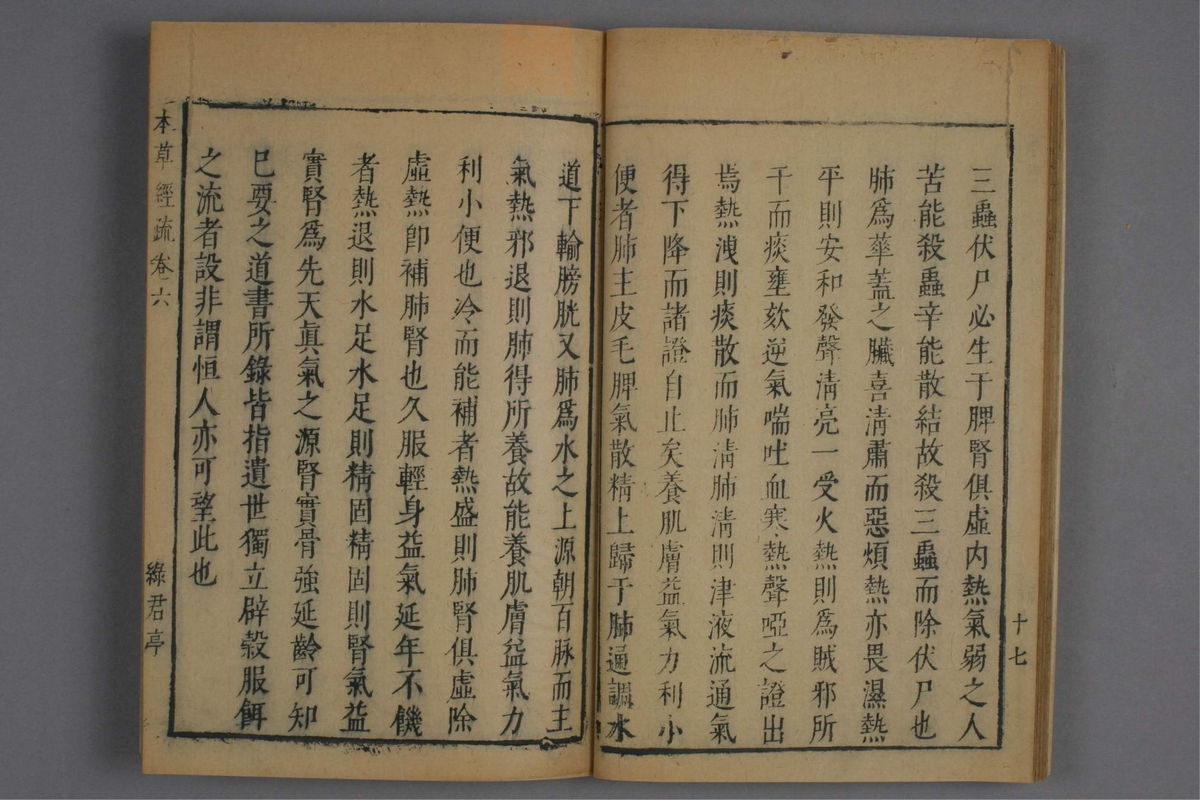 十七
三蟲伏尸必生于脾腎俱虛内熱氣弱之人
苦能殺蟲辛能散結故殺三蟲而除伏尸也
肺為華蓋之臟喜清肅而惡煩熱亦畏濕熱
平則安和發聲清亮一受火熱則為賊邪所
干而痰壅欬逆氣喘吐血寒熱聲啞之證出
焉熱洩則痰散而肺清肺清則津液流通氣
得下降而諸證自止矣養肌膚益氣力利小
便者肺主皮毛脾氣散精上歸于肺通調水
道下輸膀胱又肺為水之上源朝百脉而主
氣熱邪退則肺得所養故能養肌膚益氣力
利小便也冷而能補者熱盛則肺腎俱虛除
虛熱即補肺腎也久服輕身益氣延年不饑
者熱退則水足水足則精固精固則腎氣益
實腎為先天真氣之源腎實骨強延齡可知
已要之道書所錄皆指遺世獨立辟穀服餌
之流者設非謂恒人亦可望此也
本草經疏 卷六
綠君亭